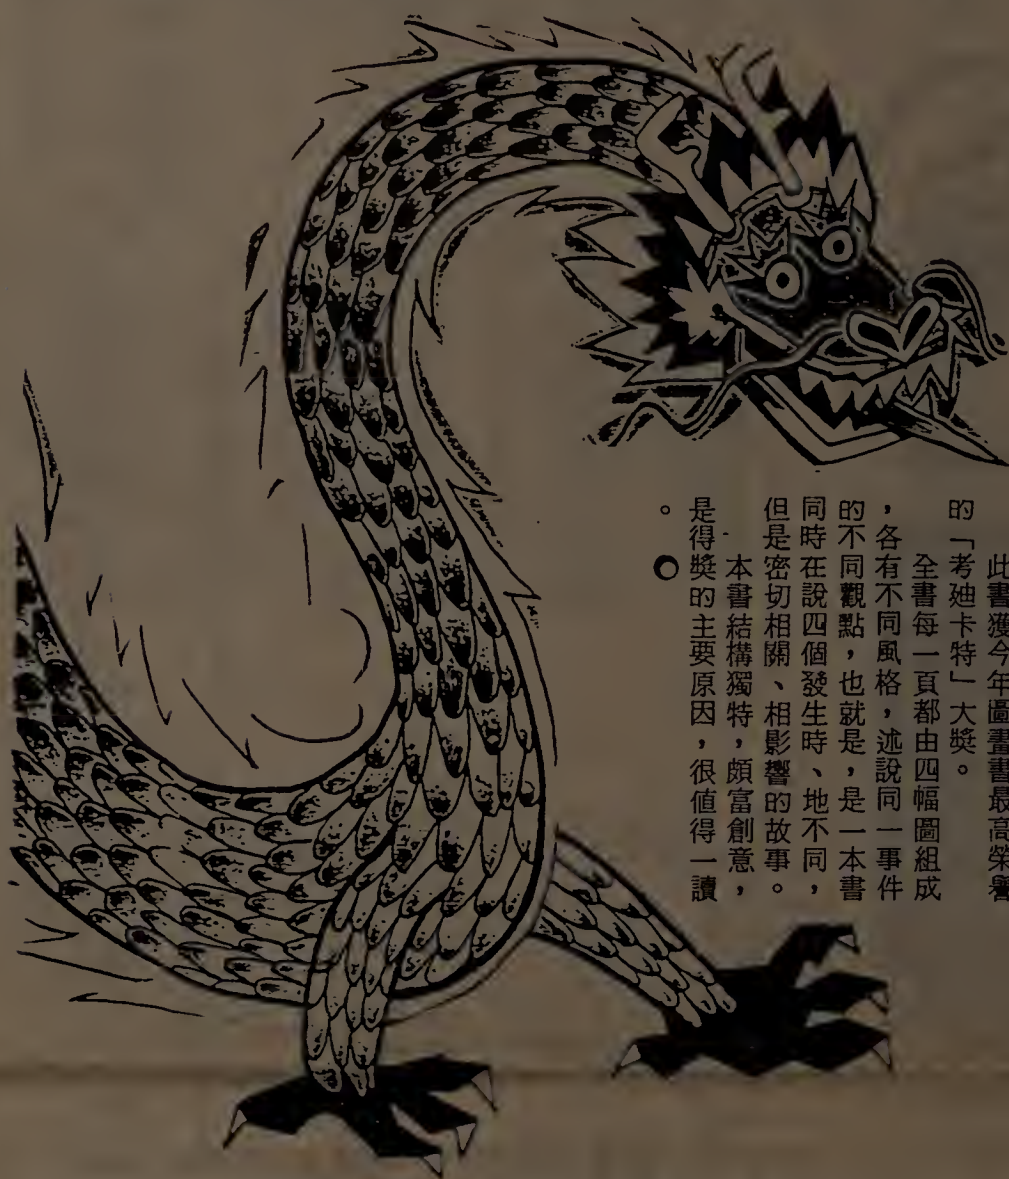 此書獲今年圖畫書最高榮譽
的「考廸卡特」大獎。
全書每一頁都由四幅圖組成
，各有不同風格，述說同一事件
的不同觀點，也就是，是一本書
同時在說四個發生時、地不同，
但是密切相關、相影響的故事。
本書結構獨特，頗富創意，
是得獎的主要原因，很值得一讀
。